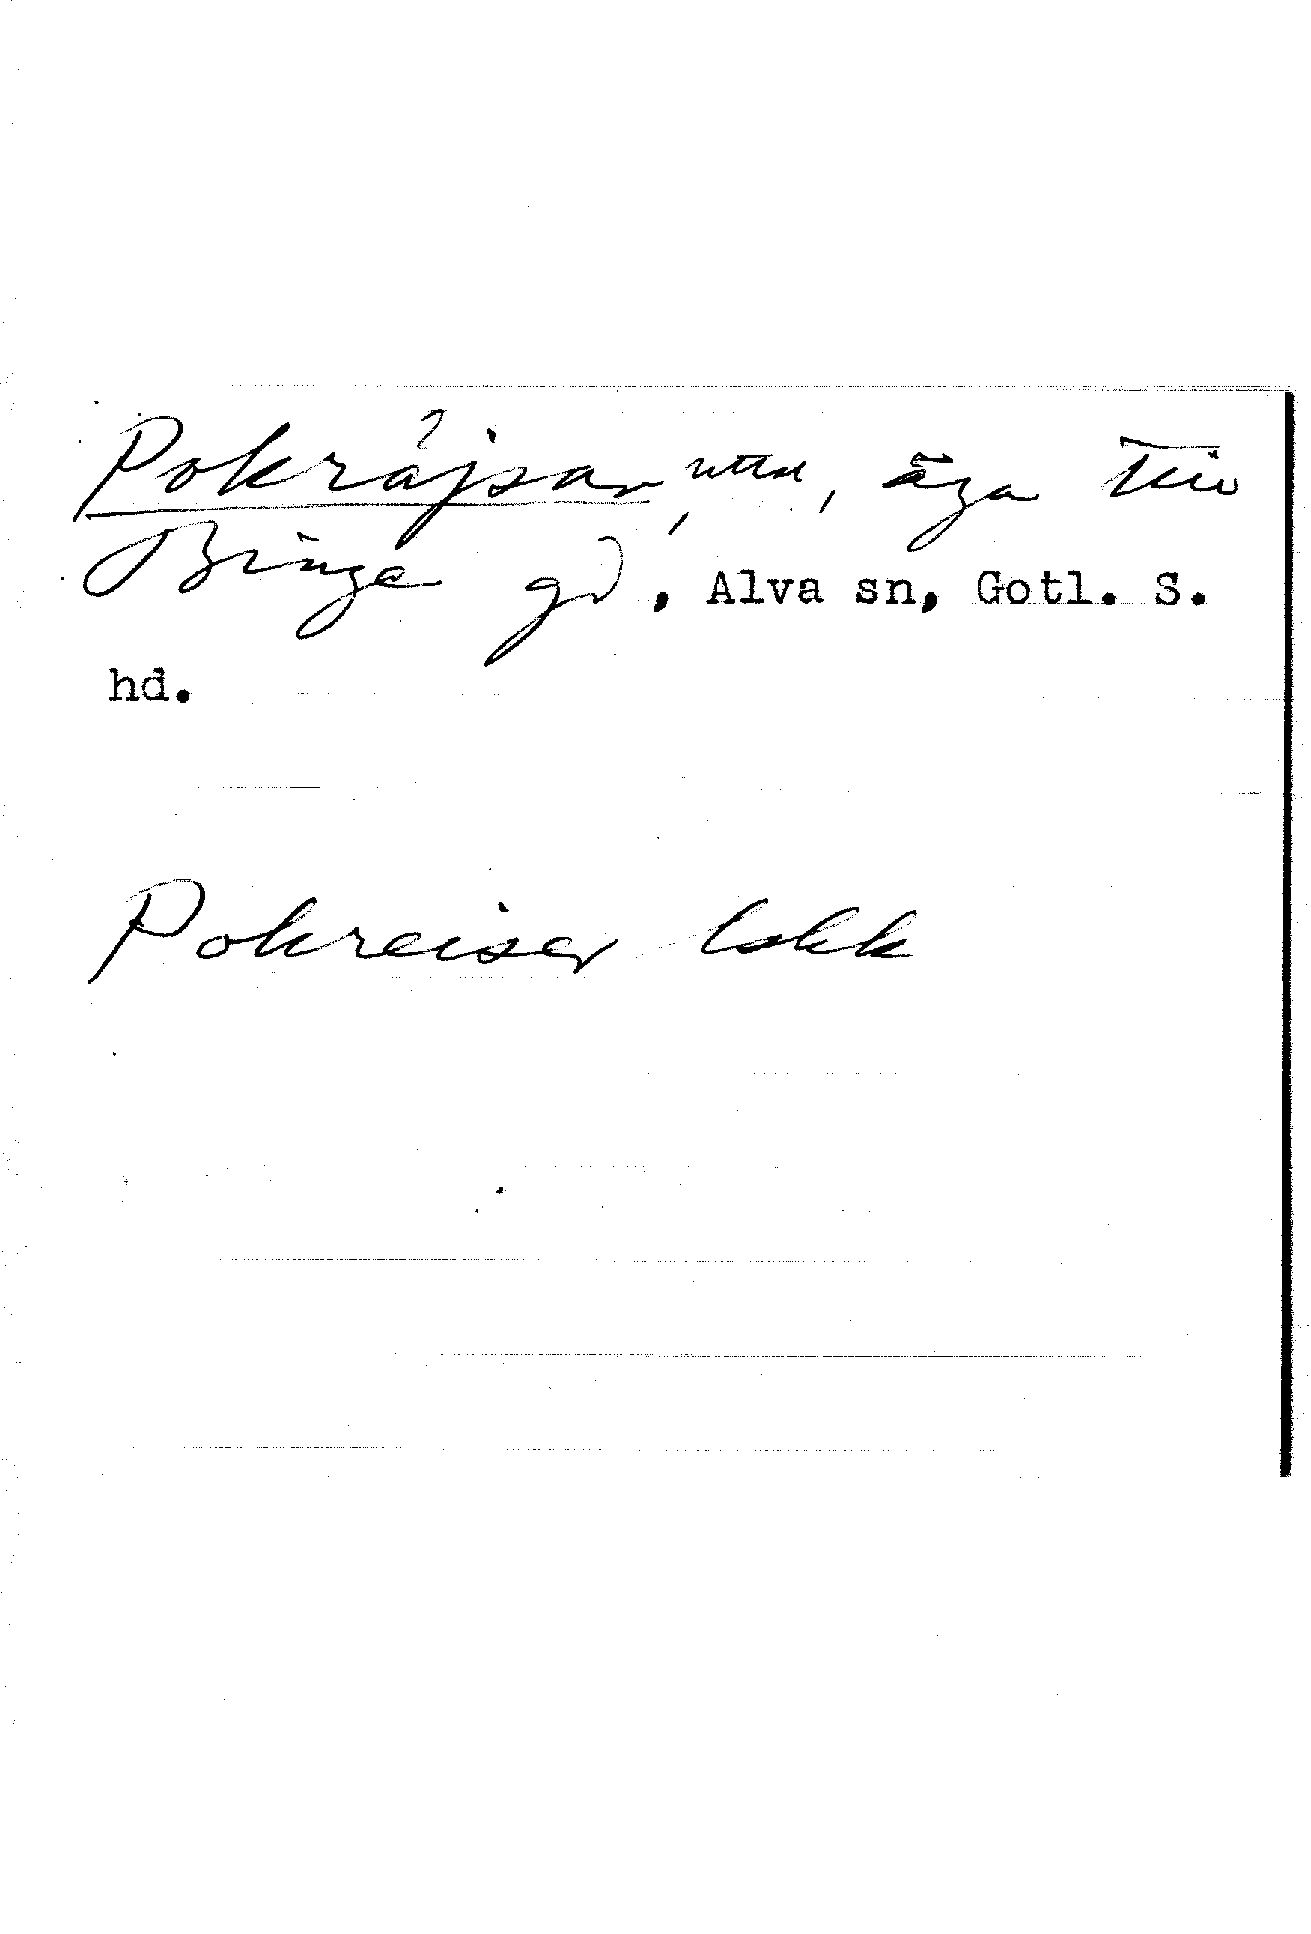 Pokråjsar, uttal, äga till
Binge gd, Alva sn, Gotl. S.
hd.
Pokreiser lokk